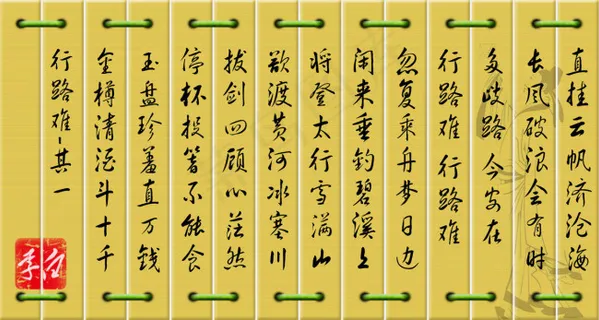 行路难-其一
金樽清酒斗十千
玉盘珍羞直万钱
停杯投箸不能食
拔剑四顾心茫然
欲渡黄河冰塞川
将登太行雪满山
闲来垂钓碧溪上
忽复乘舟梦日边
行路难行路难
多歧路今安在
长风破浪会有时
直挂云帆济沧海
李白